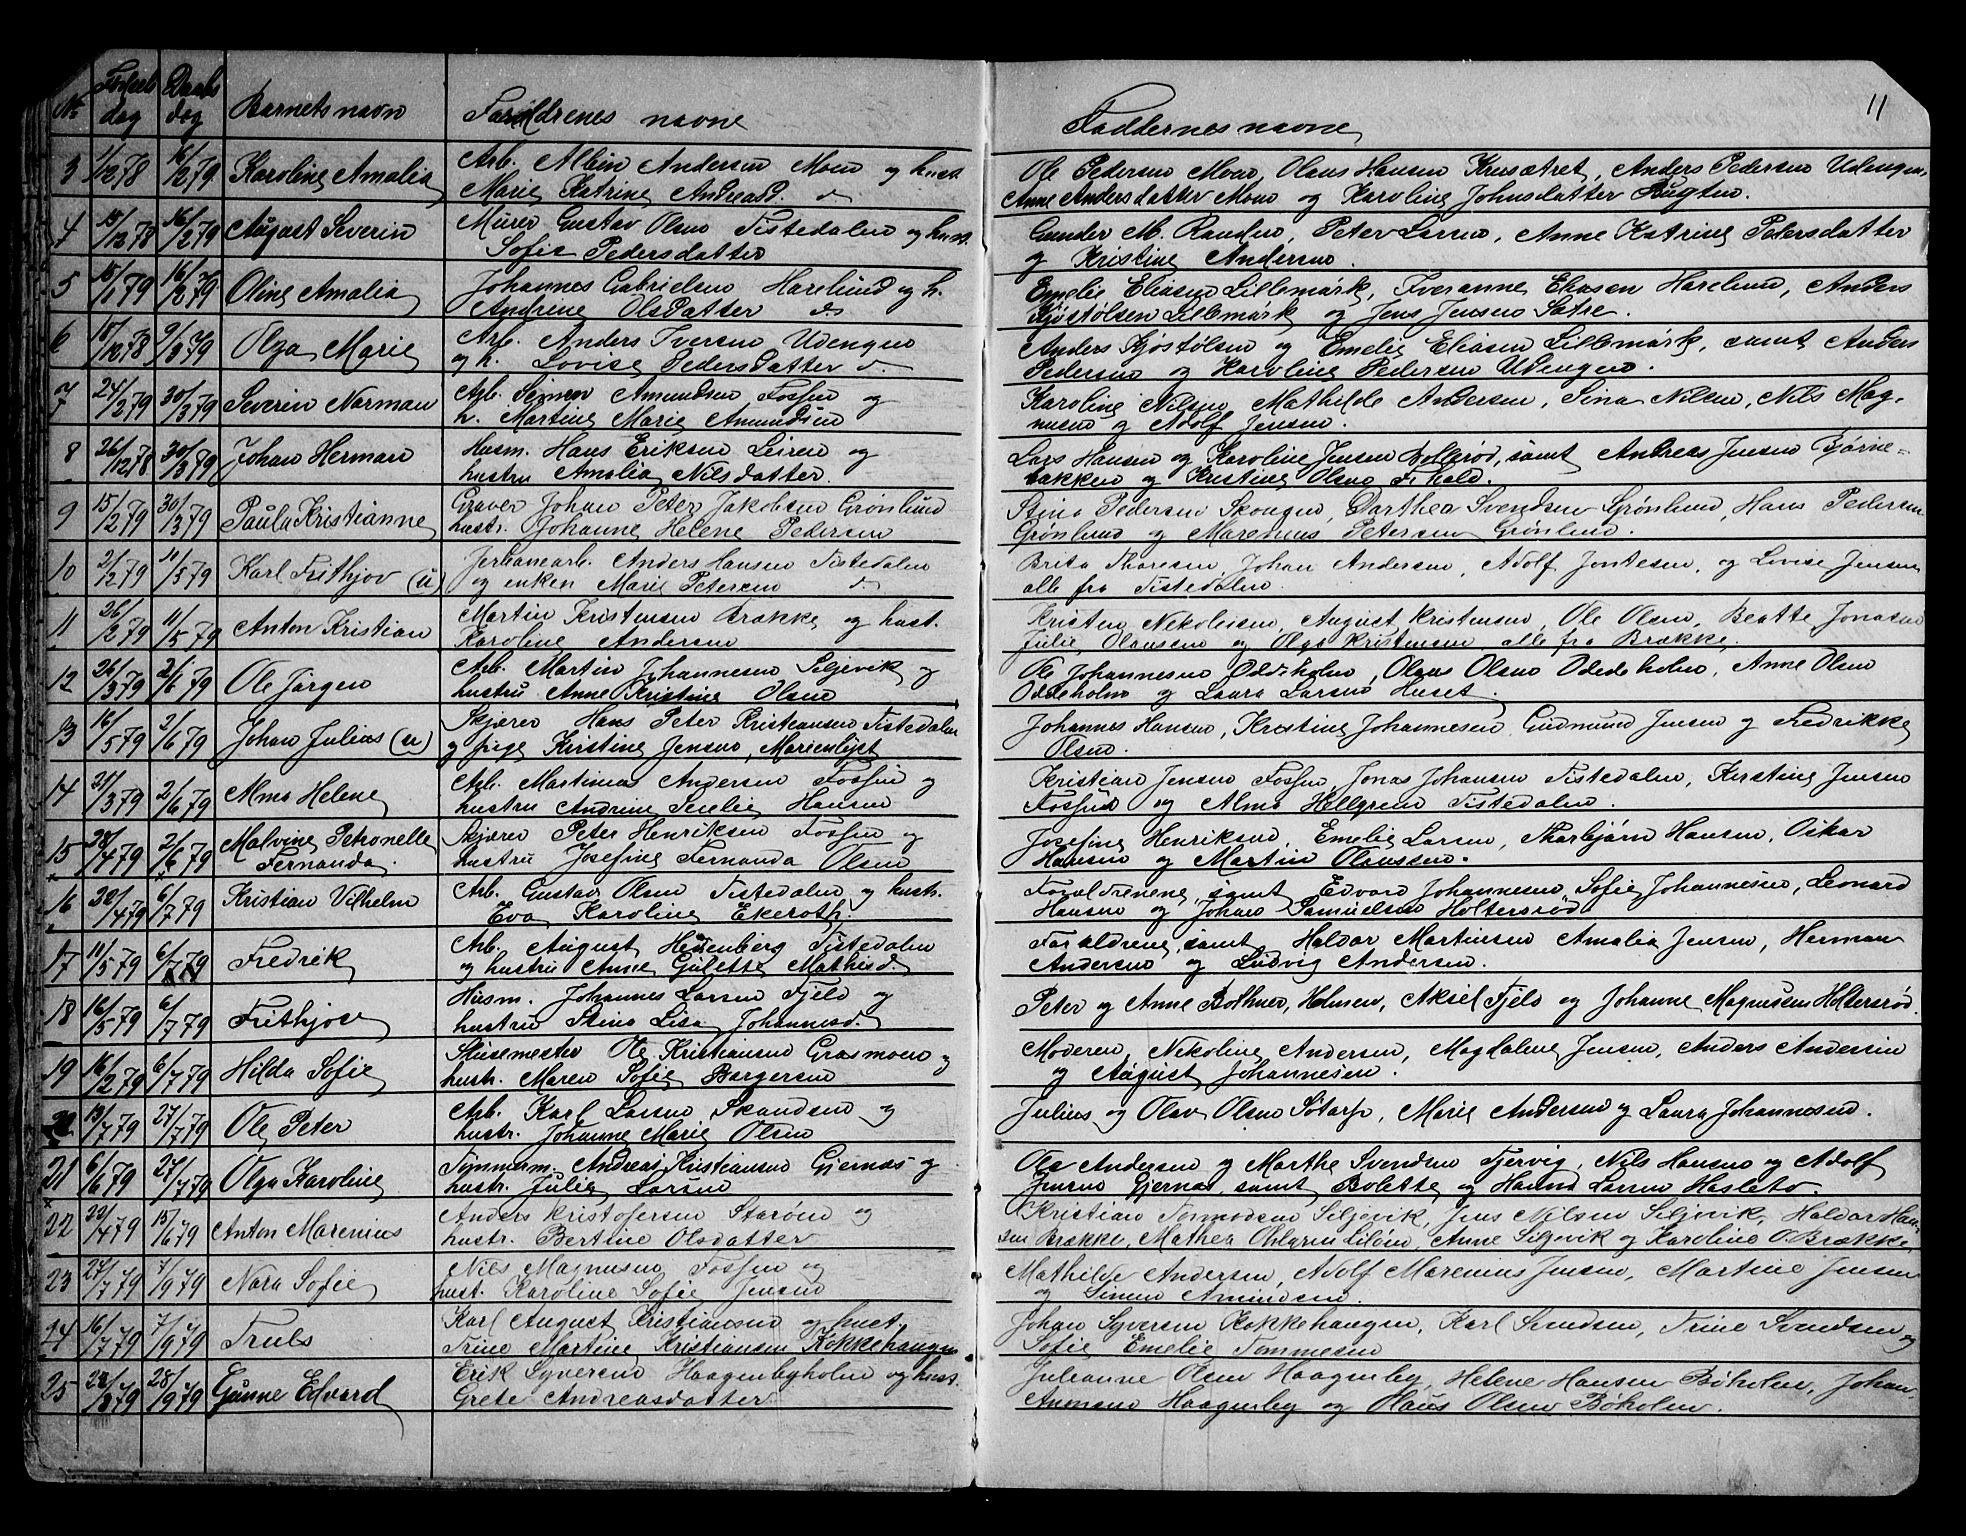 11
No Fødsels dag Daabs dag Barnets navn Forældrenes navne Faddernes navne
3 1/12 78 16/2 79 Karoline Amalia Arb. Albin Andersen Moen og hust. Ole Pedersen Moen, Olaus Hansen Krusætret, Anders Pedersen Udengen,
Marie Katrine Andreasd. do Anne Andersdatter Moen og Karoline Johnsdatter Rugten.
4 15/12 78 16/2 79 August Severin Murer Gustav Olsen Tistedalen og hust. Gunder M. Randen, Peter Larsen, Anne Katrine Pedersdatter
Sofie Pedersdatter og Kristine Andersen.
5 15/1 79 16/2 79 Oline Amalia Johannes Gabrielsen Harelund og h. Emelie Eliasen Lillemark, Iveranne Eliasen Harelund, Anders
Andrine Olsdatter do Kjøstolsen Lillemark og Jens Jensen Sætre.
6 18/12 78 9/3 79 Olga Marie Arb. Anders Iversen Udengen Anders Kjøstolsen og Emelie Eliasen Lillemark, samt Anders
og h. Lovise Pedersdatter do. Pedersen og Karoline Pedersen Udengen.
7 24/2 79 30/3 79 Severin Norman Arb. Simen Amundsen Fossen og Karoline Nilsen, Mathilde Andersen, Sina Nilsen, Nils Mag-
h. Martine Marie Amundsen nusen og Adolf Jensen.
8 26/12 78 30/3 79 Johan Herman Husm. Hans Eriksen Leiren og Lars Hansen og Karoline Jensen Bollerød, samt Andreas Jensen Bjørne-
hustru Amalia Nilsdatter. bakken og Kristine Olsen Fihold.
9 15/2 79 30/3 79 Paula Kristianne Graver Johan Peter Jakobsen Grønlund Stina Pedersen Skougen, Darthea Svendsen Grønlund, Hans Pedersen
hustr. Johanne Helene Pedersen Grønlund og Marenius Petersen Grønlund.
10 2/2 79 11/5 79 Karl Frithjov (u) Jerbanearb. Anders Hansen Tistedalen Brita Thoresen, Johan Andersen, Adolf Jontesen, og Lovise Jensen
og enken Marie Petersen do alle fra Tistedalen.
11 26/2 79 11/5 79 Anton Kristian Martin Kristensen Brække og hust. Kristen Nikolaisen, August Kristensen, Ole Olsen, Beatte Jonasen
Karoline Andersen Julie Olausen og Olga Kristensen alle fra Brække.
12 26/3 79 2/6 79 Ole Jørgen Arb. Martin Johannesen Siljevik og Ole Johannesen Oddeholm, Olaus Olsen Oddeholm, Anne Olsen
hustru Anne Kristine Olsen Oddeholm og Laura Larsen Huset.
13 16/5 79 2/6 79 Johan Julius (u) Skjærer Hans Peter Kristiansen Tistedalen Johannes Hansen, Kristine Johannesen, Gudmund Jensen og Fredrikke
og pige Kirstine Jensen, Marienlyst Olsen.
14 21/3 79 2/6 79 Alma Helene Arb. Martinius Andersen Fossen og Kristian Jensen Fossen, Jonas Johansen Tistedalen, Kirstine Jensen
hustru Andrine Emelie Hansen Fossen og Alma Hellgren Tistedalen.
15 28/4 79 2/6 79 Malvine Petronelle Skjærer Peter Henriksen Fossen og Josefine Henriksen, Emelie Larsen, Thorbjørn Hansen, Oskar
Fernanda. hustru Josefine Fernanda Olsen Hansen og Martin Olaussen.
16 22/4 79 6/7 79 Kristian Vilhelm Arb. Gustav Olsen Tistedalen og hustr. Forældrenene, samt Edvard Johannesen, Sofie Johannesen, Leonard
Eva Karoline Ekeroth. Hansen og Johan Samuelsen Holtersrød
17 11/5 79 6/7 79 Fredrik Arb. August Hedenberg Tistedalen Forældrene, samt Haldor Martinsen Amalia Jensen, Herman
og hustru Anne Gulette Mathisd. Andersen og Ludvig Andersen.
18 16/5 79 6/7 79 Frithjof Husm. Johannes Larsen Fjeld og Peter og Anne Bothner, Holmen, Aksel Fjeld og Johanne Magnussen Holtersrød.
hustru Stina Lisa Johannesd.
19 16/2 79 6/7 79 Hilda Sofie Slusemester Ole Kristiansen Grasmoen og Moderen, Nikoline Andersen, Magdaline Jensen, Anders Andersen
hustr. Maren Sofie Borgersen og August Johannesen.
20 13/7 79 27/7 79 Ole Peter Arb. Karl Larsen Skandsen og Julius og Olav Olsen Sotorp, Marie Andersen og Laura Johannesen.
hustr. Johanne Marie Olsen
21 6/6 79 27/7 79 Olga Karoline Tømmerm. Andreas Kristiansen Gjernæs og Ole Andersen og Marthe Svendsen Tjervig, Nils Hansen og Adolf
hustr. Julie Larsen Jensen Gjernæs, samt Bolette og Hanna Larsen Hasleto.
22 22/4 79 15/6 79 Anton Marenius Anders Kristofersen Storøen og Kristian Tormodsen Siljevik, Jens Nilsen Siljevik, Haldor Han-
hustr. Bertine Olsdatter sen Brække, Mathea Ohlgren Liløen, Anne Siljevik og Karoline O. Brække.
23 27/7 79 7/9 79 Nora Sofie Nils Magnusen Fossen og Mathilde Andersen, Adolf Marenius Jensen, Martine Jensen
hust. Karoline Sofie Jensen og Simen Amundsen.
24 16/7 79 7/9 79 Truls Karl August Kristiansen og hust. Johan Syversen Kokkehaugen, Karl Svendsen, Trine Svendsen og
Trine Martine Kristiansen Kokkehaugen Sofie Emelie Tommesen
25 22/8 79 28/9 79 Gunne Edvard Erik Syversen Haagenbyholm og hust. Julianne Olsen Haagenby, Helene Hansen Bøholen, Johan
Grete Andreasdatter Haagenby og Olaus Olsen Bøholen.